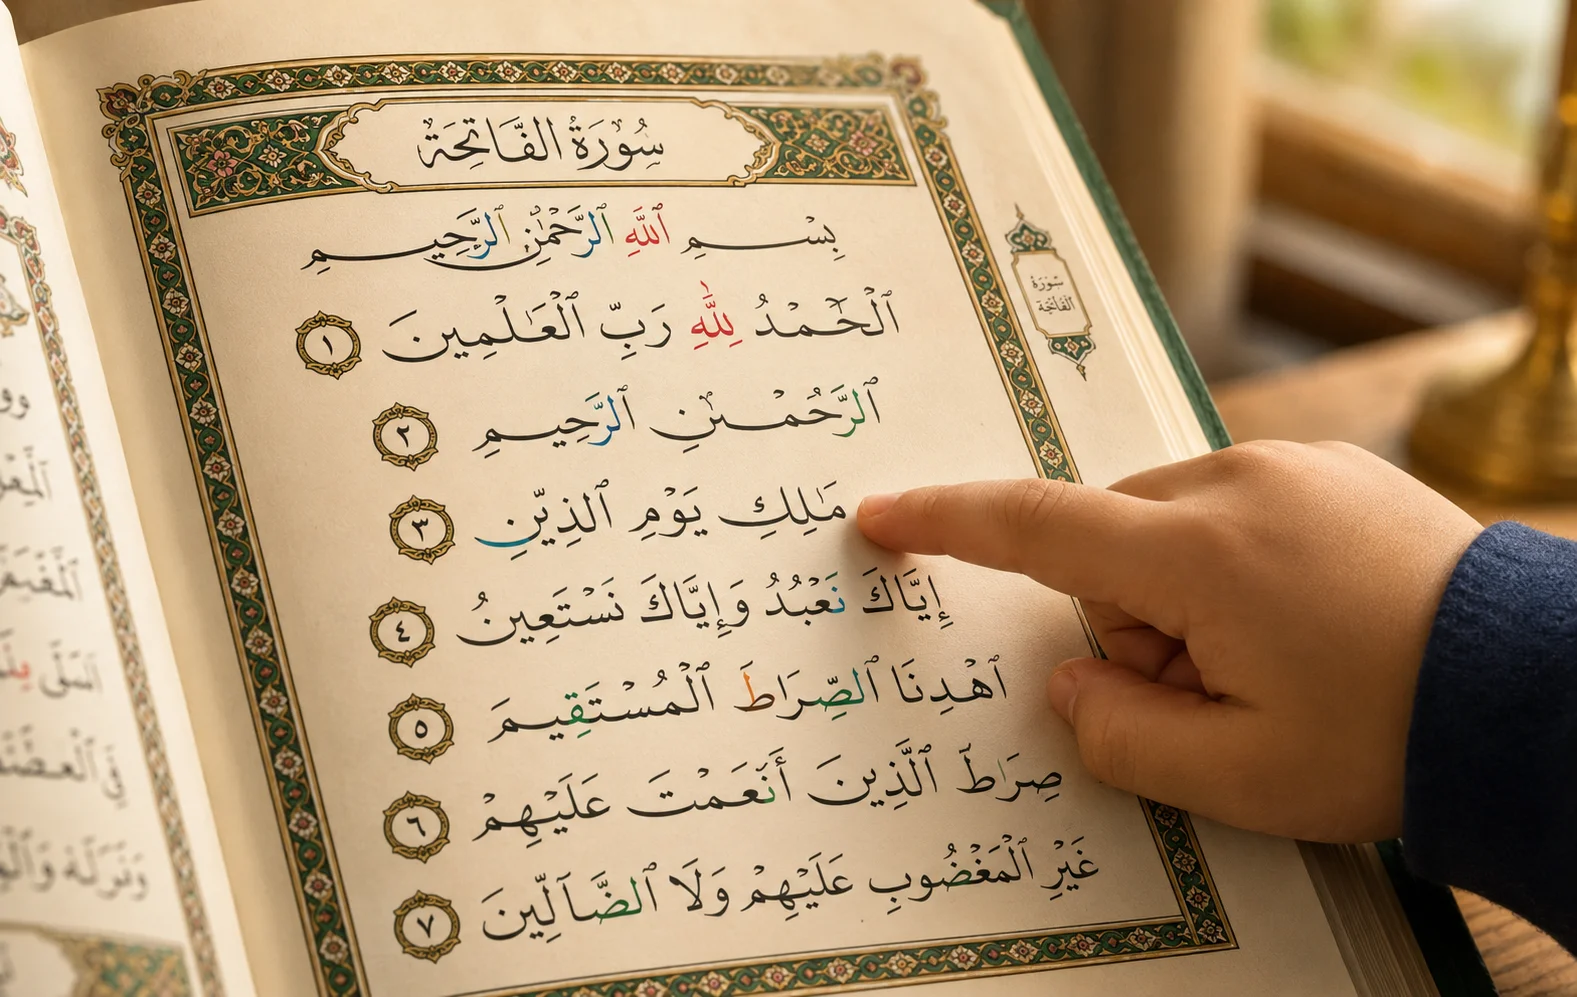 سُورَةُ الفَّاتِحَةٌ
بِسْـــمِ ٱللَّهِ ٱلرَّحْمَٰنِ ٱلرَّحِيـــمِ
ٱلْحَمْدُ لِلَّهِ رَبِّ ٱلْعَـٰلَمِينَ ١
ٱلرَّحُمْـٰنِ ٱلرَّحِيـــمِ ٢
مَـٰلِكِ يَوْمِ ٱلذِيّنِ ٣
إِيَّاكَ نَعْبُدُ وَإِيَّاكَ نَسْتَعِينُ ٤
ٱهْدِنَا ٱلصِّرَاطَ ٱلْمُسْتَقِيمَ ٥
صِرَاطَ ٱلَّذِينَ أَنْعَمْتَ عَلَيْهِمْ ٦
غَيْرِ ٱلْمَغْضُوبِ عَلَيْهِمْ وَلَا ٱلضَّآلِّينَ ٧
سُورَةُ
الفَاتِحَة